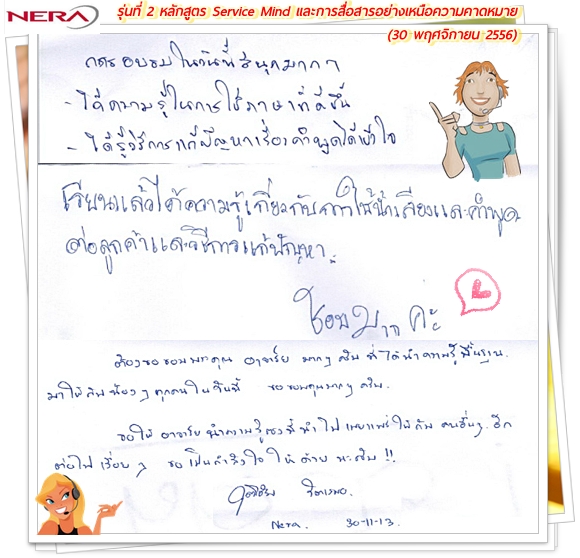 NERA
รุ่นที่ 2 หลักสูตร Service Mind และการสื่อสารอย่างเหนือความคาดหมาย
(30 พฤศจิกายน 2556)
การอบรมในวันนี้สนุกมากๆ
- ได้ความรู้ในการใช้ภาษาที่ดีขึ้น
- ได้รู้วิธีการแก้ปัญหาเรื่องคำพูดได้เข้าใจ
เรียนแล้วได้ความรู้เกี่ยวกับการใช้น้ำเสียงและคำพูด
ต่อลูกค้าและวิธีการแก้ปัญหา
ชอบมาก ค่ะ
ต้องขอขอบพระคุณ อาจารย์ มากๆ ครับ ที่ได้นำความรู้พื้นฐาน
มาให้กับน้องๆ ทุกคนในวันนี้ ขอขอบคุณมากๆ ครับ
ขอให้ อาจารย์นำความรู้ตรงนี้นำไปเผยแพร่ให้กับ คนอื่นๆ อีก
ต่อไปเรื่อยๆ ขอเป็นกำลังใจให้ด้วย นะครับ !!
Nera. 30-11-13